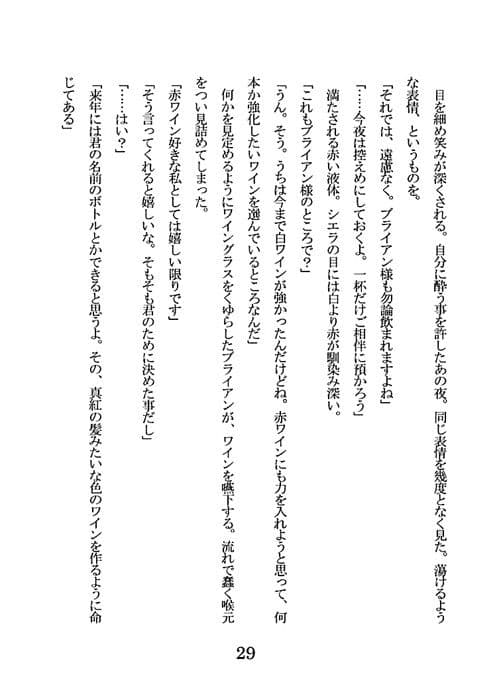 目を細め笑みが深くされる。自分に酔う事を許したあの夜。同じ表情を幾度となく見た。蕩けるよう
な表情、というものを。
「それでは、遠慮なく。ブライアン様も勿論飲まれますよね」
「……今夜は控えめにしておくよ。一杯だけご相伴に預かろう」
　満たされる赤い液体。シエラの目には白より赤が馴染み深い。
「これもブライアン様のところで？」
「うん。そう。うちは今まで白ワインが強かったんだけどね。赤ワインにも力を入れようと思って、何
本か強化したいワインを選んでいるところなんだ」
　何かを見定めるようにワイングラスをくゆらしたブライアンが、ワインを嚥下する。流れで蠢く喉元
をつい見詰めてしまった。
「赤ワイン好きな私としては嬉しい限りです」
「そう言ってくれると嬉しいな。そもそも君のために決めた事だし」
「……はい？」
「来年には君の名前のボトルとかできると思うよ。その、真紅の髪みたいな色のワインを作るように命
じてある」
29